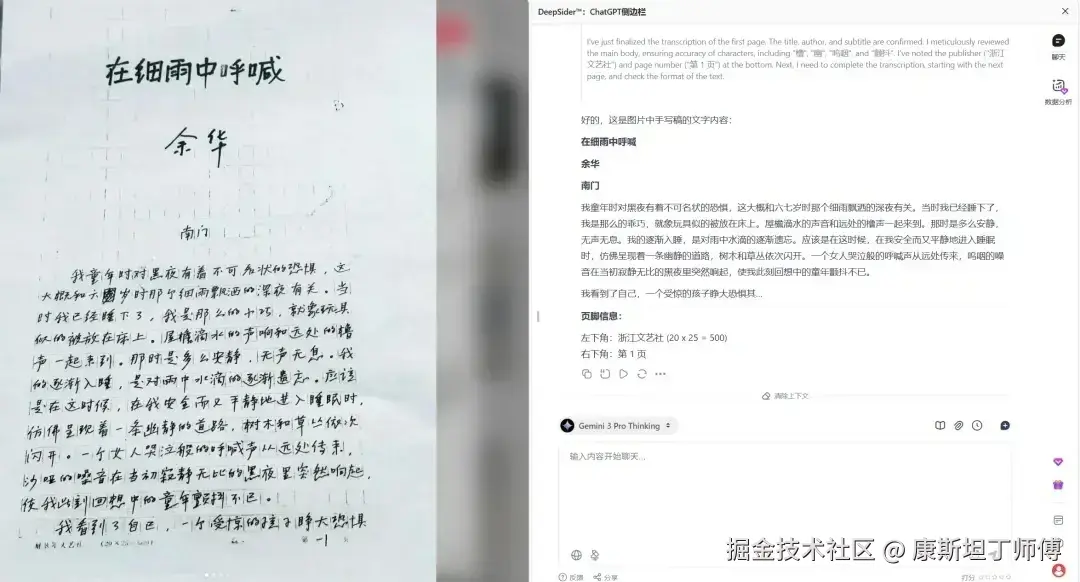 在细雨中呼喊
余华
南门
我童年时对黑夜有着不可名状的恐惧，这
大概和六七岁时那个细雨飘洒的深夜有关。当
时我已经睡下了，我是那么的小巧，就象玩具
似的被放在床上。屋檐滴水的声响和远处的
声一起来到。那时是多么安静，无声无息。我
的逐渐入睡，是对雨中水滴的逐渐遗忘。应该
是在这时候，在我安全而又平静地进入睡眠时，
仿佛呈现着一条幽静的道路，树木和草丛依次
闪开。一个女人哭泣般的呼喊声从远处传来，
沙哑的嗓音在当初寂静无比的黑夜里突然响起，
使我此刻回想中的童年颤抖不已。
我看到了自己，一个受惊的孩子睁大恐惧
(20×25=500)
第 1 页
DeepSider™：ChatGPT侧边栏
I've just finalized the transcription of the first page. The title, author, and subtitle are confirmed. I meticulously reviewed
the main body, ensuring accuracy of characters, including
I've noted the publisher ("浙江
文艺社") and page number ("第 1 页") at the bottom. Next, I need to complete the transcription, starting with the next
page, and check the format of the text.
好的，这是图片中手写稿的文字内容：
在细雨中呼喊
余华
南门
我童年时对黑夜有着不可名状的恐惧，这大概和六七岁时那个细雨飘洒的深夜有关。当时我已经睡下了，
我是那么的乖巧，就象玩具似的被放在床上。屋檐滴水的声音和远处的橹声一起来到。那时是多么安静，
无声无息。我的逐渐入睡，是对雨中水滴的逐渐遗忘。应该是在这时候，在我安全而又平静地进入睡眠
时，仿佛呈现着一条幽静的道路，树木和草丛依次闪开。一个女人哭泣般的呼喊声从远处传来，呜咽的嗓
音在当初寂静无比的黑夜里突然响起，使我此刻回想中的童年颤抖不已。
我看到了自己，一个受惊的孩子睁大恐惧其...
页脚信息：
左下角：浙江文艺社 (20 x 25 = 500)
右下角：第 1 页
清除上下文
Gemini 3 Pro Thinking
输入内容开始聊天...
聊天
数据分析
反馈
分享
打分
掘金技术社区 @ 康斯坦丁师傅